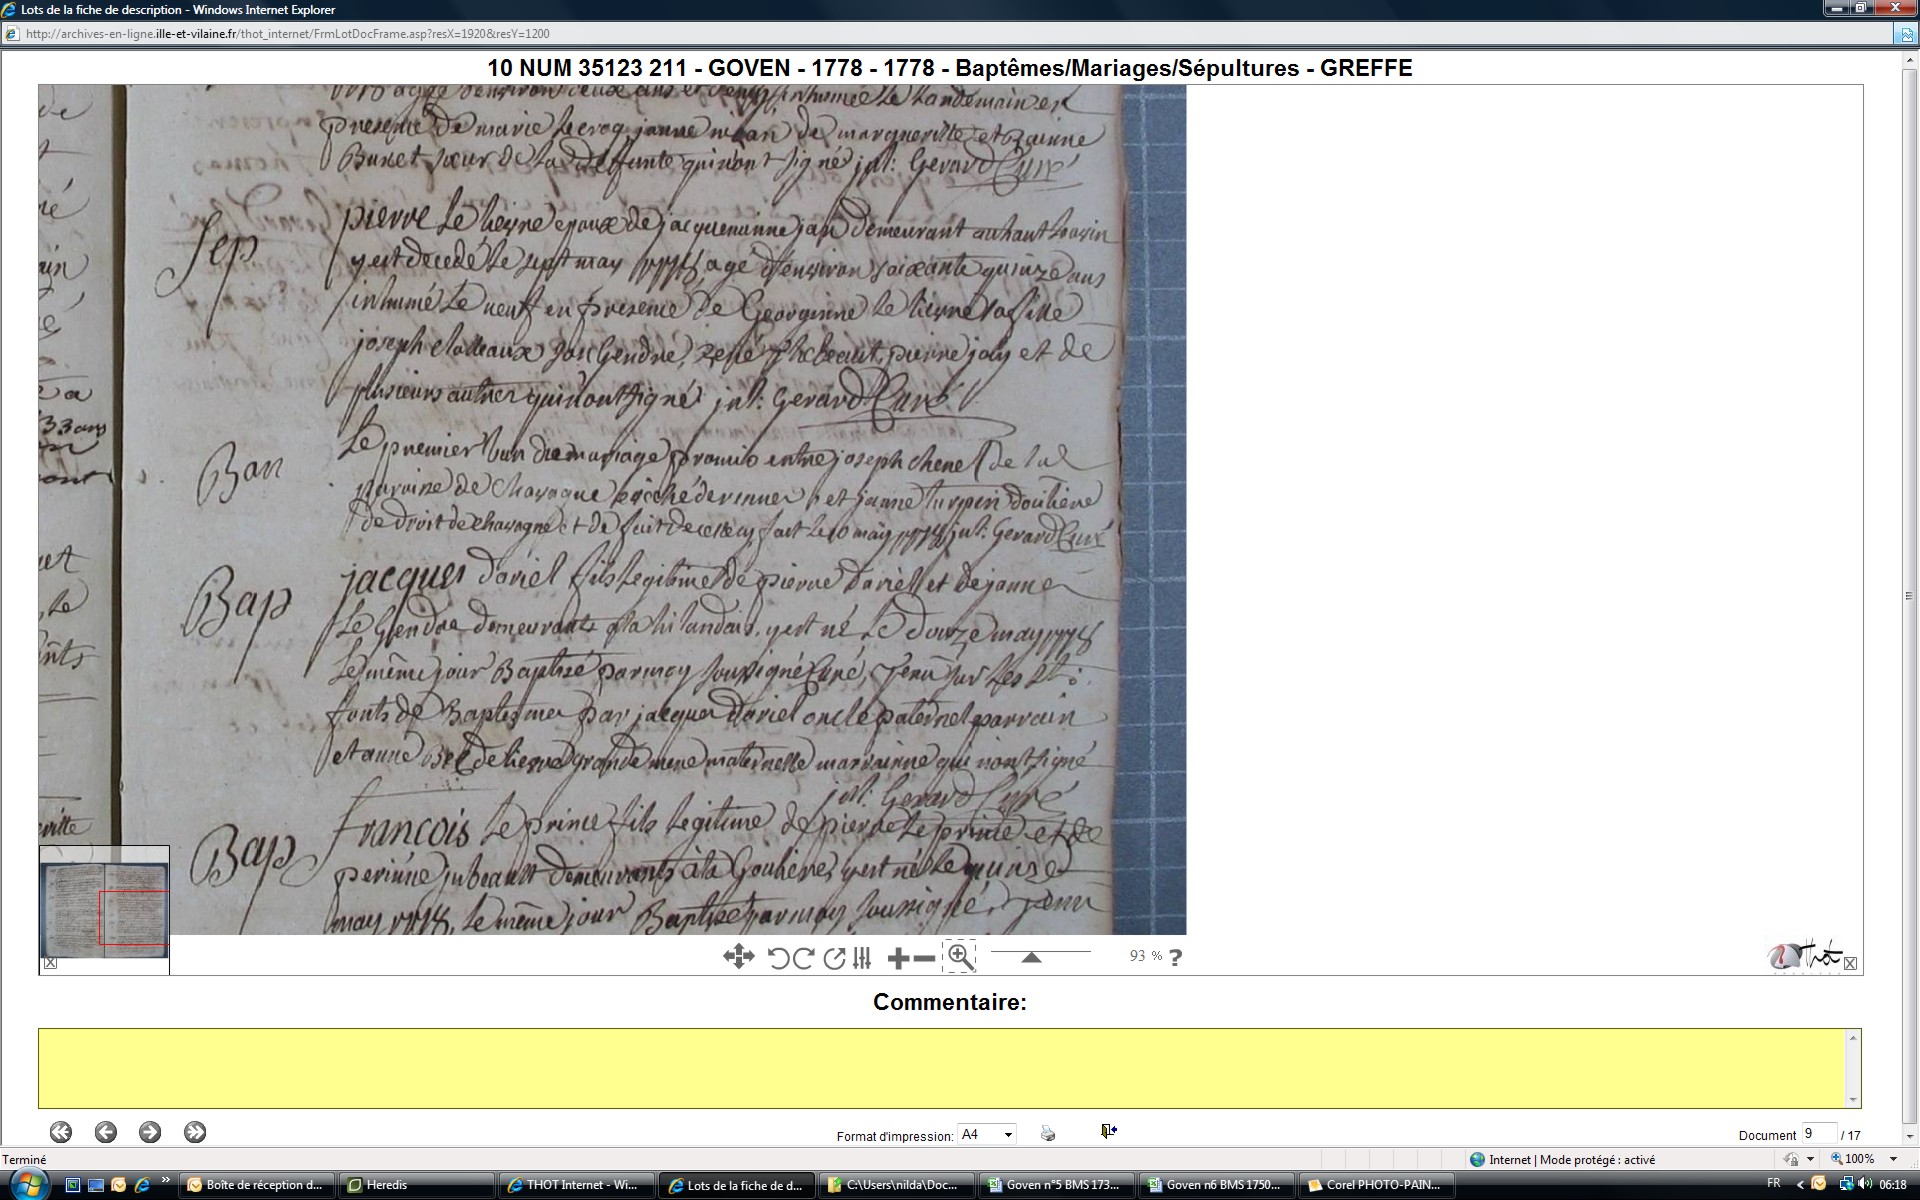 Lots de la fiche de description - Windows Internet Explorer
http://archives-en-ligne.ille-et-vilaine.fr/thot_internet/FrmLotDocFrame.asp?resX=1920&resY=1200
10 NUM 35123 211 - GOVEN - 1778 - 1778 - Baptêmes/Mariages/Sépultures - GREFFE
inhumée le landemain en
presence de marie janne de margueritte et
Buret soeur de la deffunte qui n'ont signé Gerard Curé
Sep
pierre Le lievre epoux de jacqueminne jan demeurant au haut
y est decedé le sept may 1778 agé d'environ soixante quinze ans
inhumé le neuf en presence de Georginne le lievre sa fille
joseph son Gendre, rené pierre joly et de
plusieurs autres qui n'ont signé Gerard Curé
Ban
Le premier ban du mariage promis entre joseph chenel de la
paroisse de Chavagne evêché de rennes, et janne turpin
de droit de chavagne et de fait de fait le 10 may 1778 Gerard Curé
Bap
jacques daviel fils legitime de pierre daviel et de janne
Le Gendre demeurants a la y est né Le douze may 1778
Le même jour Baptisé par moy soussigné Curé, tenu sur les sts
fonts de Baptesme par jacques daviel oncle paternel parrain
et anne de lievre grande mere maternelle marrainne qui n'ont signé
Gerard Curé
Bap
francois Le prince fils legitime de pierre Le prince et de
perinne jubeault demeurants à la y est né Le quinze
may 1778, le même jour Baptisé par moy soussigné, tenu
de
33 ans
93 % ?
Thot
Commentaire:
Format d'impression: A4
Document 9 / 17
Terminé
Internet | Mode protégé : activé
100%
Boîte de réception d...
Heredis
THOT Internet - Wi...
Lots de la fiche de d...
C:\Users\nilda\Doc...
Goven n°5 BMS 173...
Goven n6 BMS 1750...
Corel PHOTO-PAIN...
FR
06:18